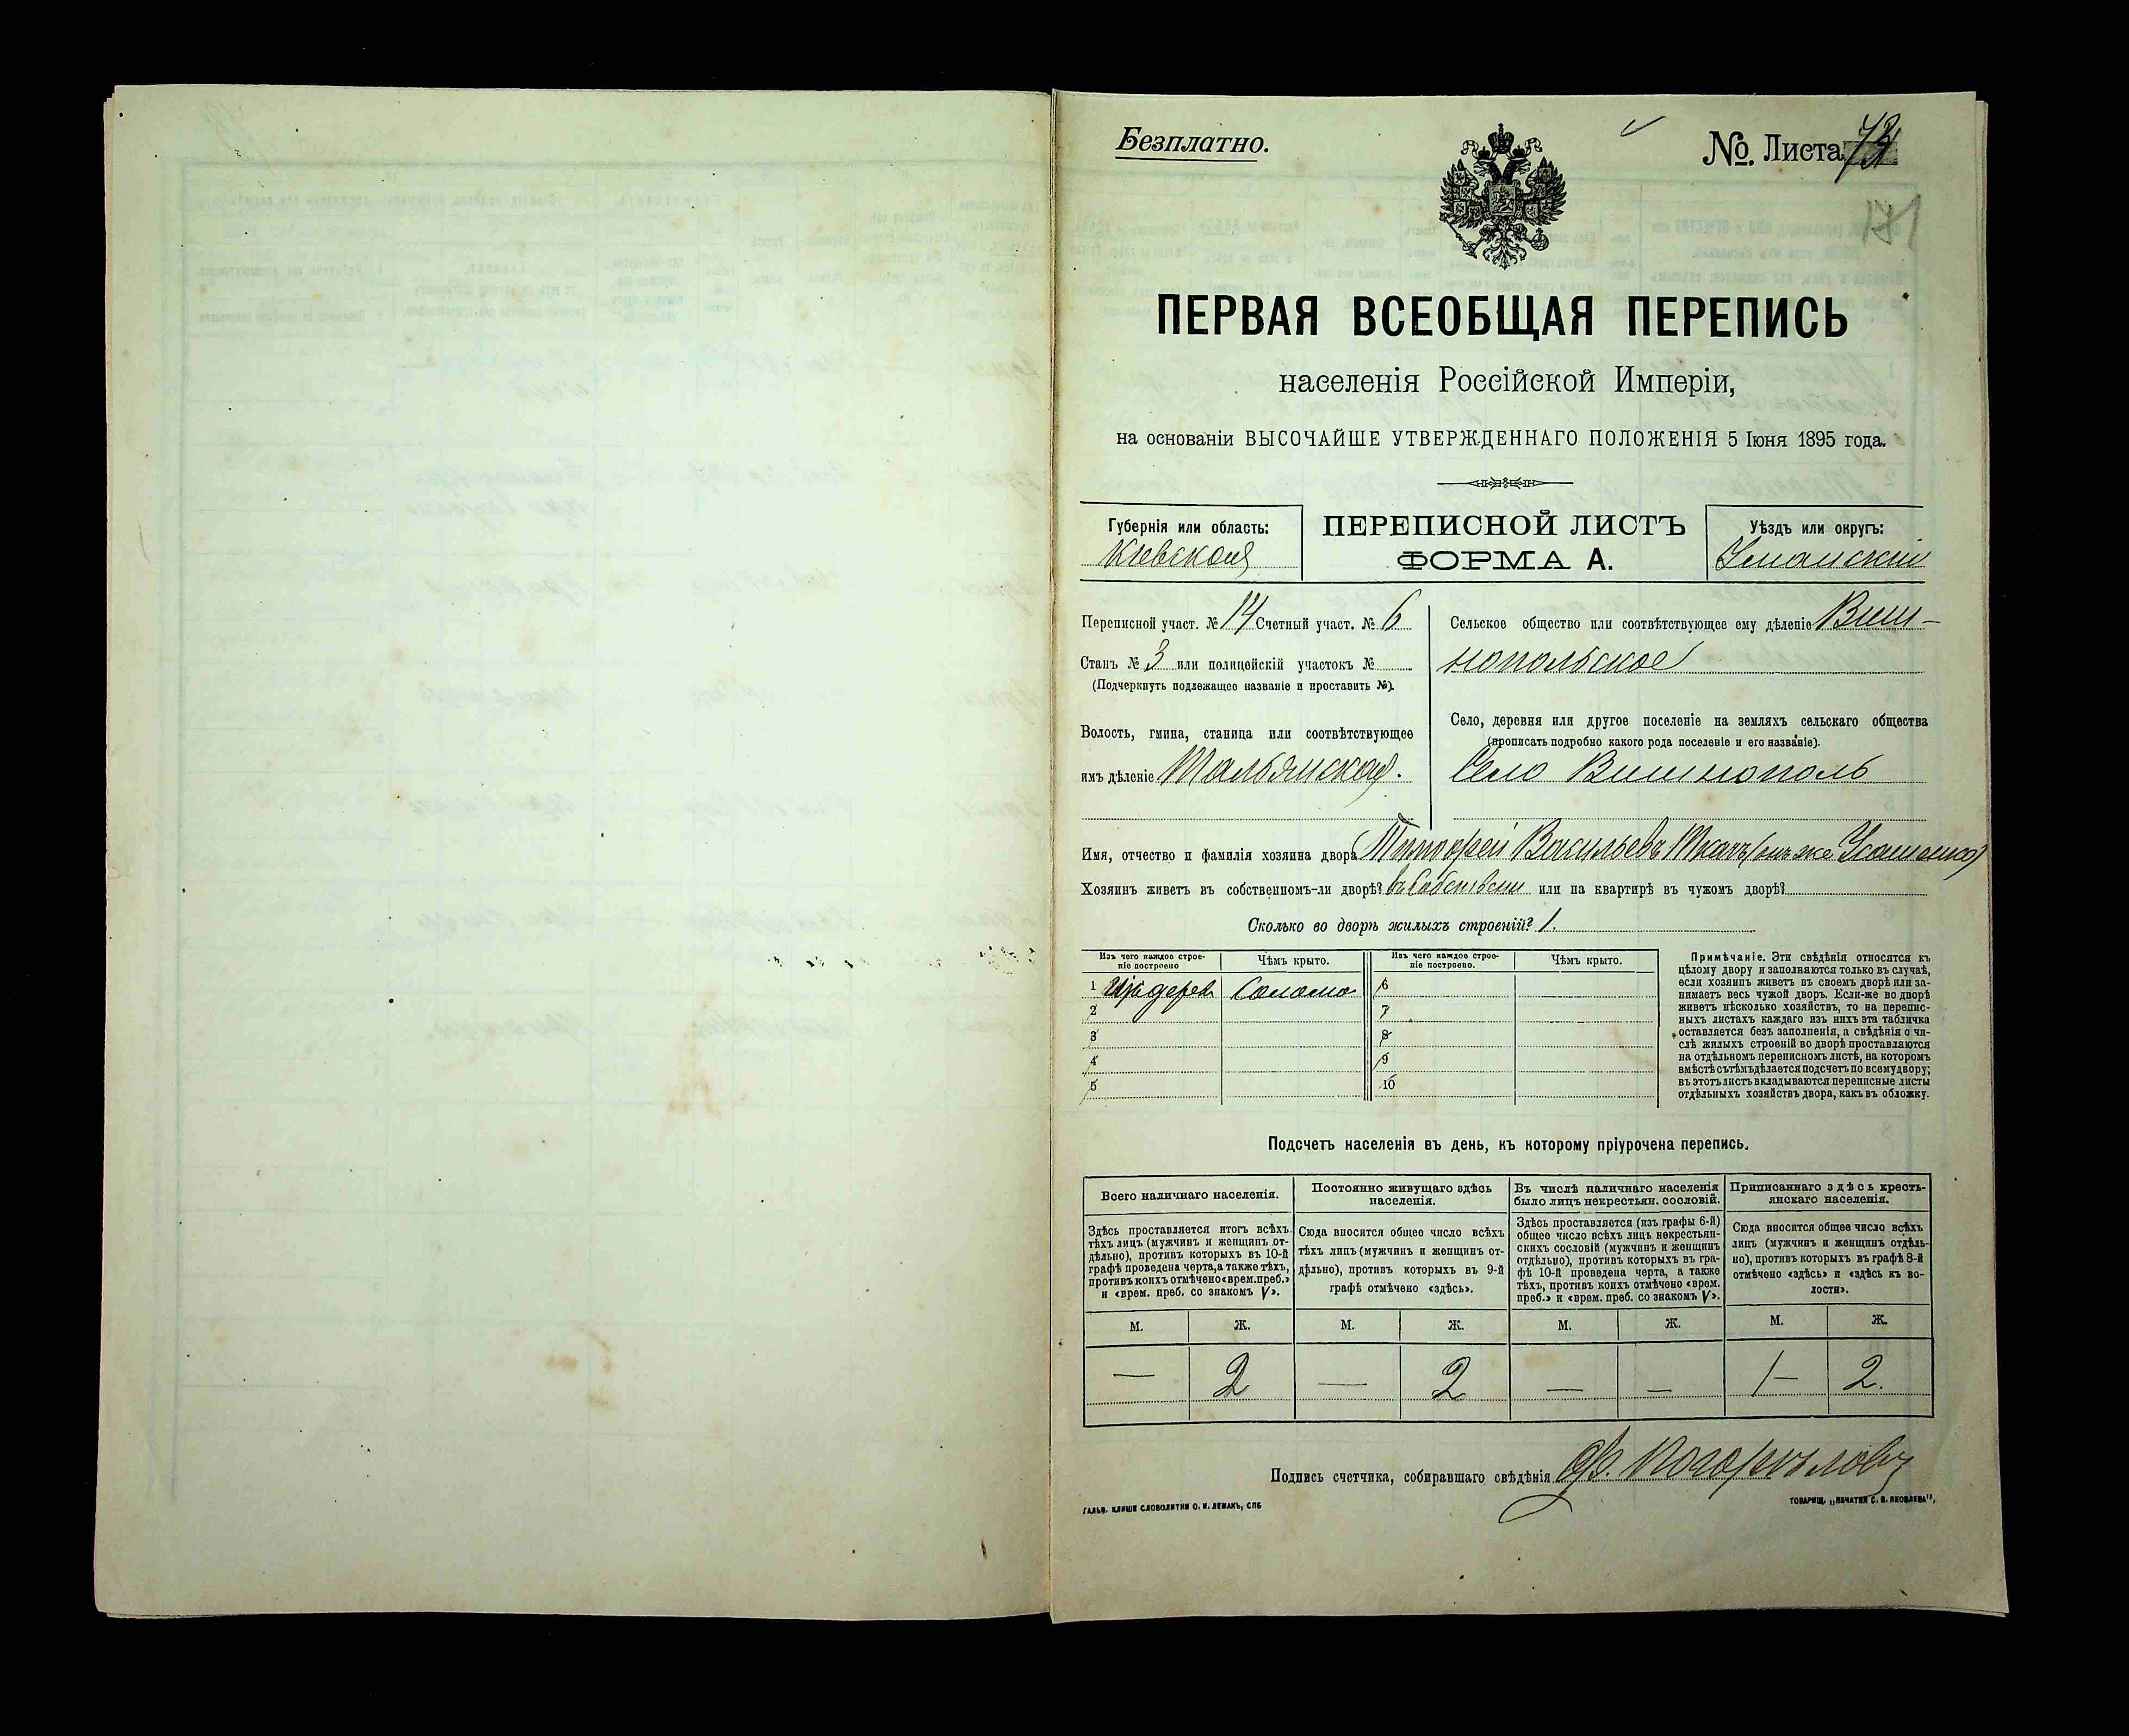 Безплатно.
№. Листа
ПЕРВАЯ ВСЕОБЩАЯ ПЕРЕПИСЬ
населенія Россійской Имперіи,
на основаніи ВЫСОЧАЙШЕ УТВЕРЖДЕННАГО ПОЛОЖЕНІЯ 5 Іюня 1895 года.
Губернія или область:
Кіевская
ПЕРЕПИСНОЙ ЛИСТЪ
ФОРМА А.
Уѣздъ или округъ:
Уманскій
Переписной участ. № 14 Счетный участ. № 6
Станъ № 3 или полицейскій участокъ №
(Подчеркнуть подлежащее названіе и проставить №).
Волость, гмина, станица или соотвѣтствующее
имъ дѣленіе Тальянская.
Сельское общество или соотвѣтствующее ему дѣленіе Виш-
нопольское
Село, деревня или другое поселеніе на земляхъ сельскаго общества
(прописать подробно какого рода поселеніе и его названіе).
Село Вишнополь
Имя, отчество и фамилія хозяина двора Тимофей Васильевъ Ткачъ (онъ же
Хозяинъ живетъ въ собственномъ-ли дворѣ? или на квартирѣ въ чужомъ дворѣ?
Сколько во дворѣ жилыхъ строеній? 1.
Изъ чего каждое строе-
ніе построено
Чѣмъ крыто.
Изъ чего каждое строе-
ніе построено.
Чѣмъ крыто.
1 Изъ дерев Солома 6
2 7
3 8
4 9
5 10
Примѣчаніе. Эти свѣдѣнія относятся къ
цѣлому двору и заполняются только въ случаѣ,
если хозяинъ живетъ въ своемъ дворѣ или за-
нимаетъ весь чужой дворъ. Если-же во дворѣ
живетъ нѣсколько хозяйствъ, то на перепис-
ныхъ листахъ каждаго изъ нихъ эта табличка
оставляется безъ заполненія, а свѣдѣнія о чи-
слѣ жилыхъ строеній во дворѣ проставляются
на отдѣльномъ переписномъ листѣ, на которомъ
вмѣстѣ съ тѣмъ дѣлается подсчетъ по всему двору;
въ этотъ листъ вкладываются переписные листы
отдѣльныхъ хозяйствъ двора, какъ въ обложку.
Подсчетъ населенія въ день, къ которому пріурочена перепись.
Всего наличнаго населенія.
Здѣсь проставляется итогъ всѣхъ
тѣхъ лицъ (мужчинъ и женщинъ от-
дѣльно), противъ которыхъ въ 10-й
графѣ проведена черта, а также тѣхъ,
противъ коихъ отмѣчено «врем. преб.»
и «врем. преб. со знакомъ V».
Постоянно живущаго здѣсь
населенія.
Сюда вносится общее число всѣхъ
тѣхъ лицъ (мужчинъ и женщинъ от-
дѣльно), противъ которыхъ въ 9-й
графѣ отмѣчено «здѣсь».
Въ числѣ наличнаго населенія
было лицъ некрестьян. сословій.
Здѣсь проставляется (изъ графы 6-й)
общее число всѣхъ лицъ некрестьян-
скихъ сословій (мужчинъ и женщинъ
отдѣльно), противъ которыхъ въ гра-
фѣ 10-й проведена черта, а также
тѣхъ, противъ коихъ отмѣчено «врем.
преб.» и «врем. преб. со знакомъ V».
Приписаннаго здѣсь кресть-
янскаго населенія.
Сюда вносится общее число всѣхъ
лицъ (мужчинъ и женщинъ отдѣль-
но), противъ которыхъ въ графѣ 8-й
отмѣчено «здѣсь» и «здѣсь къ во-
лости».
М. Ж. М. Ж. М. Ж. М. Ж.
— 2 — 2 — — 1 2.
Подпись счетчика, собиравшаго свѣдѣнія Погорѣловъ
ГАЛЬВ. КЛИШЕ СЛОВОЛИТНИ О. И. ЛЕМАНЪ, СПБ
ТОВАРИЩ. „ПЕЧАТНЯ С. П. ЯКОВЛЕВА",